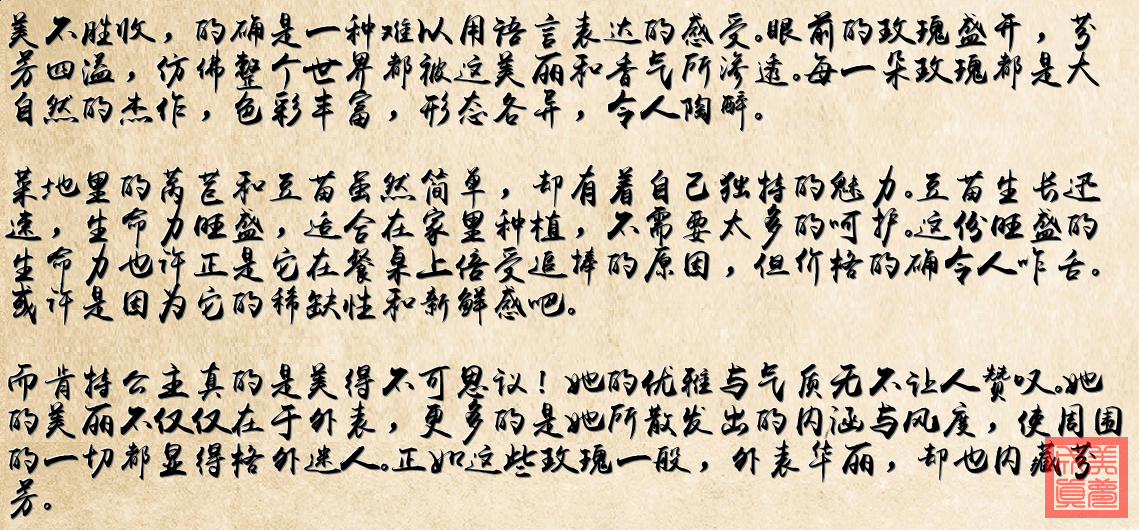 美不胜收，的确是一种难以用语言表达的感受。眼前的玫瑰盛开，芬
芳四溢，仿佛整个世界都被这美丽和香气所渗透。每一朵玫瑰都是大
自然的杰作，色彩丰富，形态各异，令人陶醉。
菜地里的莴苣和豆苗虽然简单，却有着自己独特的魅力。豆苗生长迅
速，生命力旺盛，适合在家里种植，不需要太多的呵护。这份旺盛的
生命力也许正是它在餐桌上倍受追捧的原因，但价格的确令人咋舌。
或许是因为它的稀缺性和新鲜感吧。
而肯特公主真的是美得不可思议！她的优雅与气质无不让人赞叹。她
的美丽不仅仅在于外表，更多的是她所散发出的内涵与风度，使周围
的一切都显得格外迷人。正如这些玫瑰一般，外表华丽，却也内藏芬
芳。